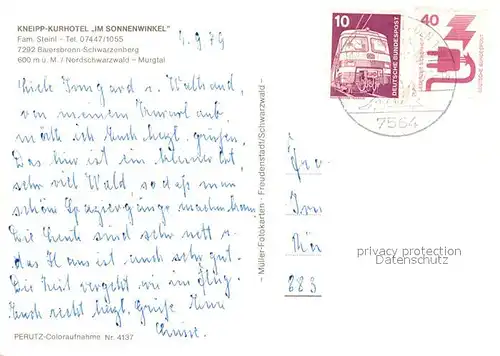 KNEIPP-KURHOTEL „IM SONNENWINKEL"
Fam. Steinl - Tel. 07447/1055
7292 Baiersbronn-Schwarzenberg
600 m ü. M. / Nordschwarzwald - Murgtal
1.9.79
Liebe Irmgard u. Waltraud,
von meinem Urlaub aus
möcht ich Euch herzl. grüßen.
Das hier ist ein kleiner Ort,
sehr viel Wald, so daß man
schöne Spaziergänge machen kann.
Die Leute sind sehr nett u.
das Haus ist auch sehr gut.
Die Zeit vergeht wie im Flug.
Euch recht herzl. Grüße Eure
PERUTZ-Coloraufnahme Nr. 4137
- Müller-Fotokarten - Freudenstadt/Schwarzwald -
10
DEUTSCHE BUNDESPOST
40
DEUTSCHE BUNDESPOST
7564
privacy protection
Datenschutz
883